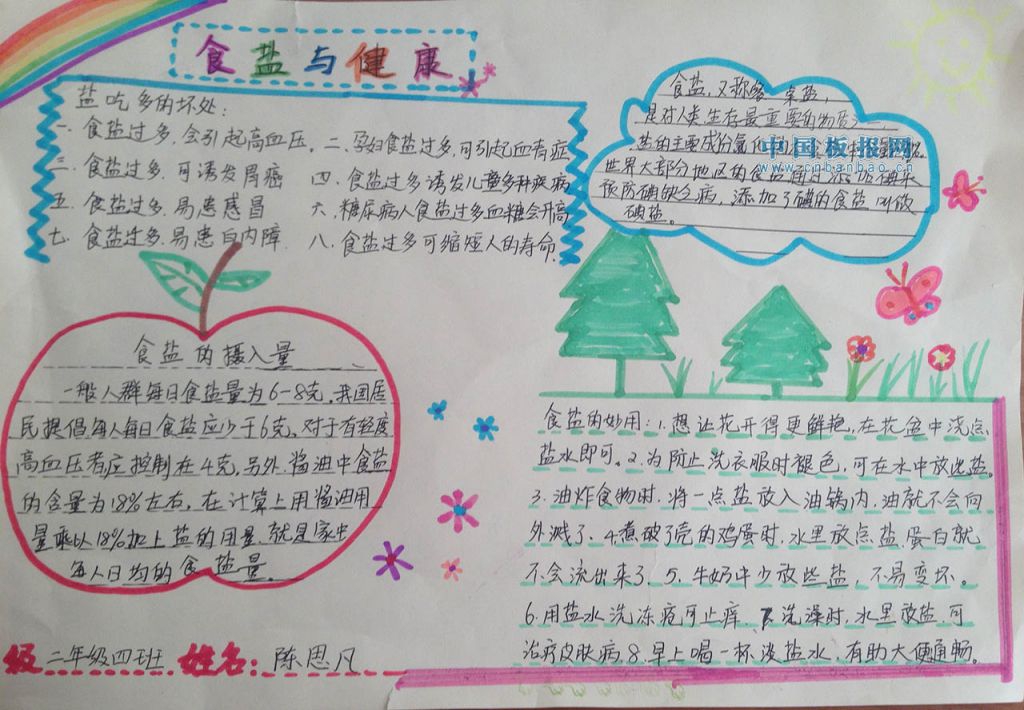 食盐与健康
盐吃多的坏处:
一 食盐过多,会引起高血压。二、孕妇食盐过多,可引起血有症
三 食盐过多,可诱发胃癌 四、食盐过多诱发儿童多种疾病
五 食盐过多,易患感冒 六,糖尿病人食盐过多血糖会升高
七 食盐过多,易患白内障. 八、食盐过多可缩短人的寿命.
食盐,又称 桌盐,
是对人类生存最重要的物
盐的主要成份氯化
中国板报网
www.cnbanbao.cn
世界大部分地区的食盐 添
预防碘缺乏病,添加了碘的食盐叫做
碘盐。
食盐的摄入量
一般人群每日食盐量为6-8克,我国居
民提倡每人每日食盐应少于6克。对于有轻度
高血压者应控制在4克,另外,酱油中食盐
的含量为18%左右,在计算上用酱油用
量乘以18%加上盐的用量.就是家中
每人日均的食盐量。
食盐的妙用:1.想让花开得更鲜艳,在花盆中浇点
盐水即可。2.为防止洗衣服时褪色,可在水中放些盐。
3.油炸食物时.将一点盐放入油锅内.油就不会向
外溅了.4.煮破了壳的鸡蛋时,水里放点盐.蛋白就
不会流出来了.5.牛奶中少放些盐,不易变坏。
6.用盐水洗冻疮可止痒.7.洗澡时,水里放盐.可
治疗皮肤病.8.早上喝一杯淡盐水,有助大便通畅。
级二年级四班 姓名:陈思凡